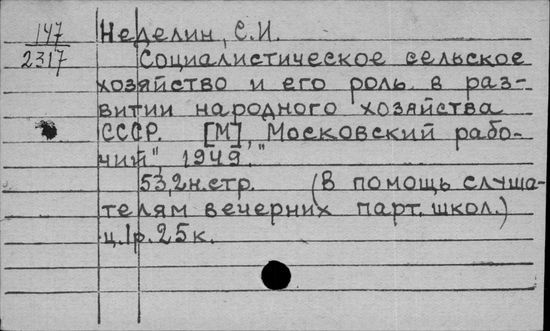 147
2317
Неделин, С.И.
Социалистическое сельское
хозяйство и его роль в раз-
витии народного хозяйства
СССР. [М], "Московский рабо-
чий", 1949.
53,2н.стр. (В помощь слуша-
телям вечерних парт. школ.)
ц.1р.25к.